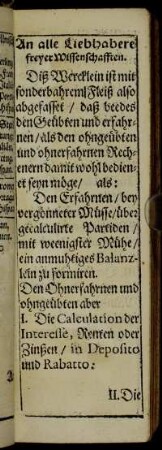 An alle Liebhabere
freyer Wissenschafften.
Diß Wercklein ist mit
sonderbahrem Fleiß also
abgefasset / daß beedes
den Geübten und erfahr-
nen / als den ohngeübten
und ohnerfahrnen Rech-
enern damit wohl bedien-
et seyn möge / als:
Den Erfahrnen / bey
vergönneter Müsse / über
gecalculirte Partiden /
mit weenigster Mühe /
ein anmuhtiges Balanz-
lein zu formiren.
Den Ohnerfahrnen und
ohngeübten aber
I. Die Calculation der
Interesse, Renten oder
Zinßen / in Deposito
und Rabatto:
II. Die